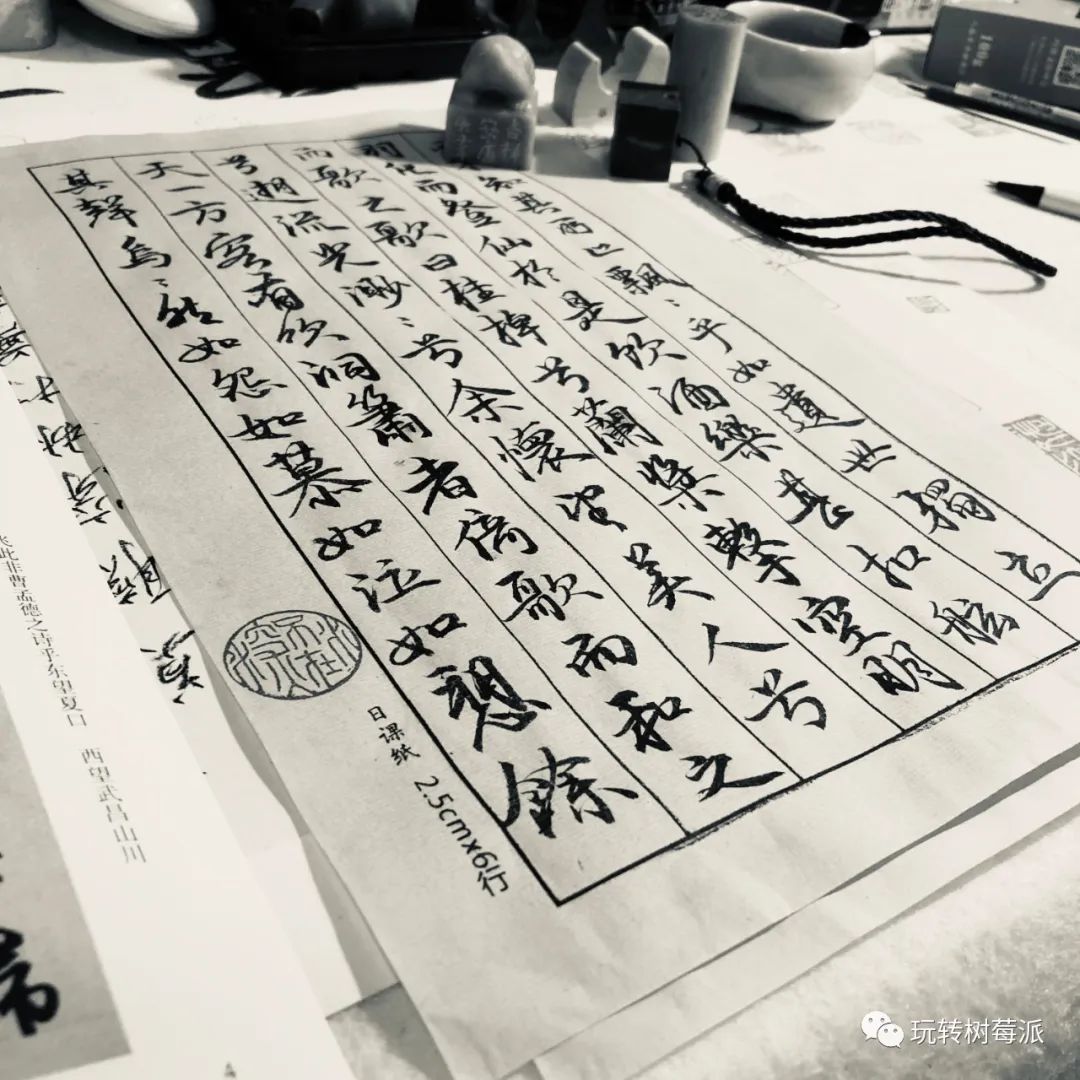 知其所止飄〻乎如遺世獨立
羽化而登仙於是飲酒樂甚扣舷
而歌之歌曰桂棹兮蘭槳擊空明
兮遡流光渺〻兮余懷望美人兮
天一方客有吹洞簫者倚歌而和之
其聲烏〻然如怨如慕如泣如愬餘
日课纸 2.5cm×6行
此非曹孟德之诗乎东望夏口 西望武昌山川
4
玩转树莓派